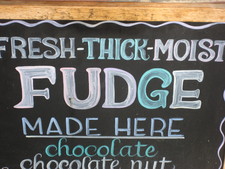 FRESH-THICK-MOIST
FUDGE
MADE HERE
chocolate
chocolate nut